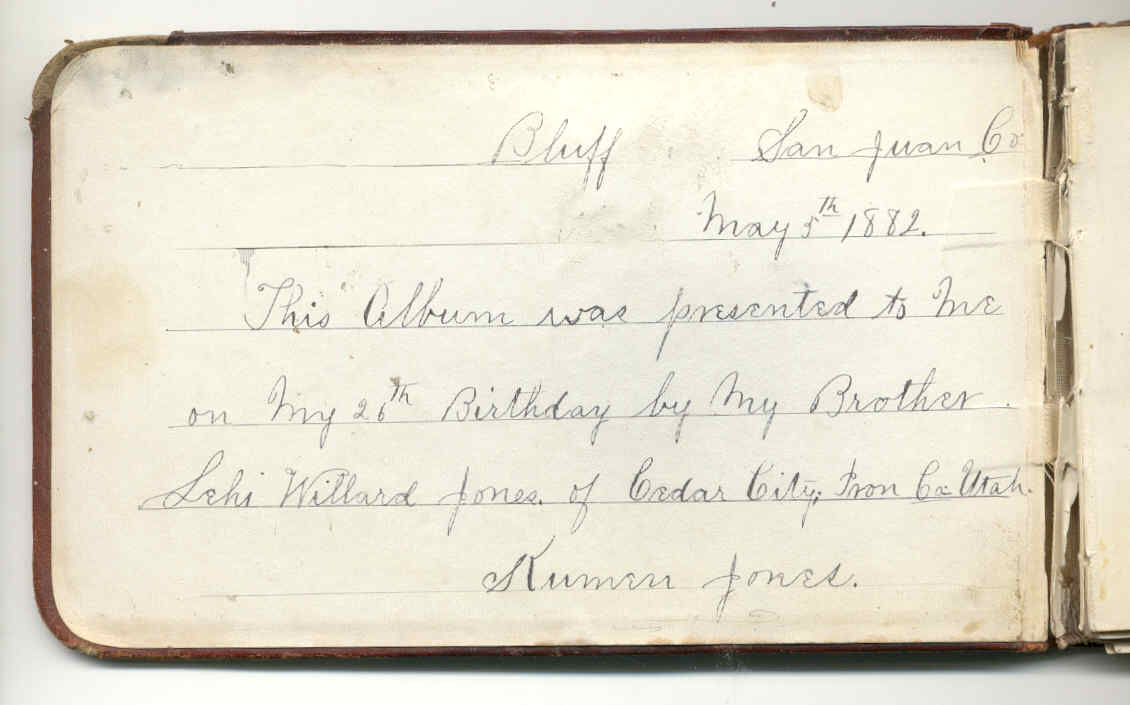 Bluff San Juan Co
May 5th 1882.
This Album was presented to Me
on My 26th Birthday by My Brother.
Lehi Willard Jones. of Cedar City, Iron Co Utah.
Kumen Jones.